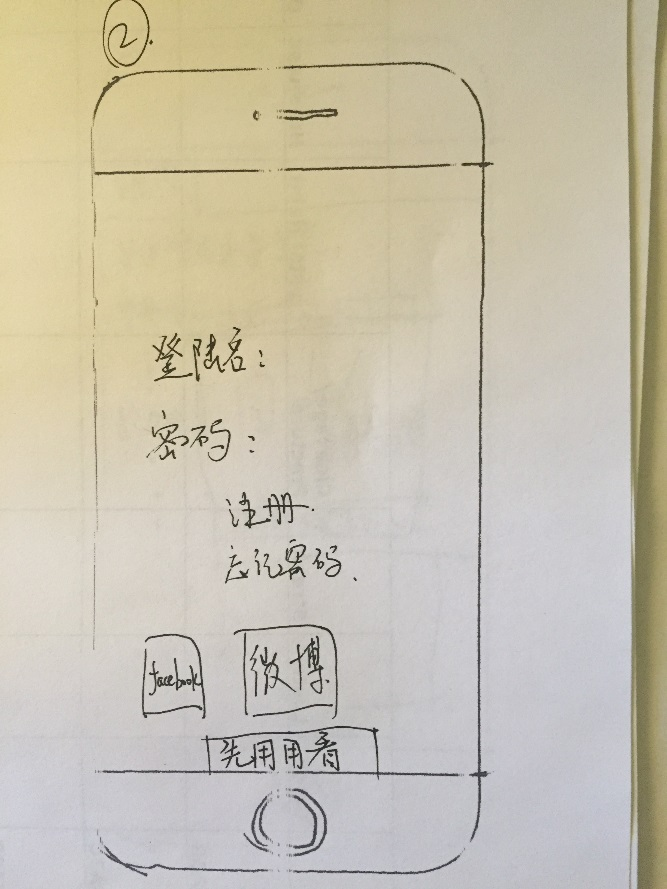 2.
登陆名：
密码：
注册.
忘记密码.
facebook 微博
先用用看